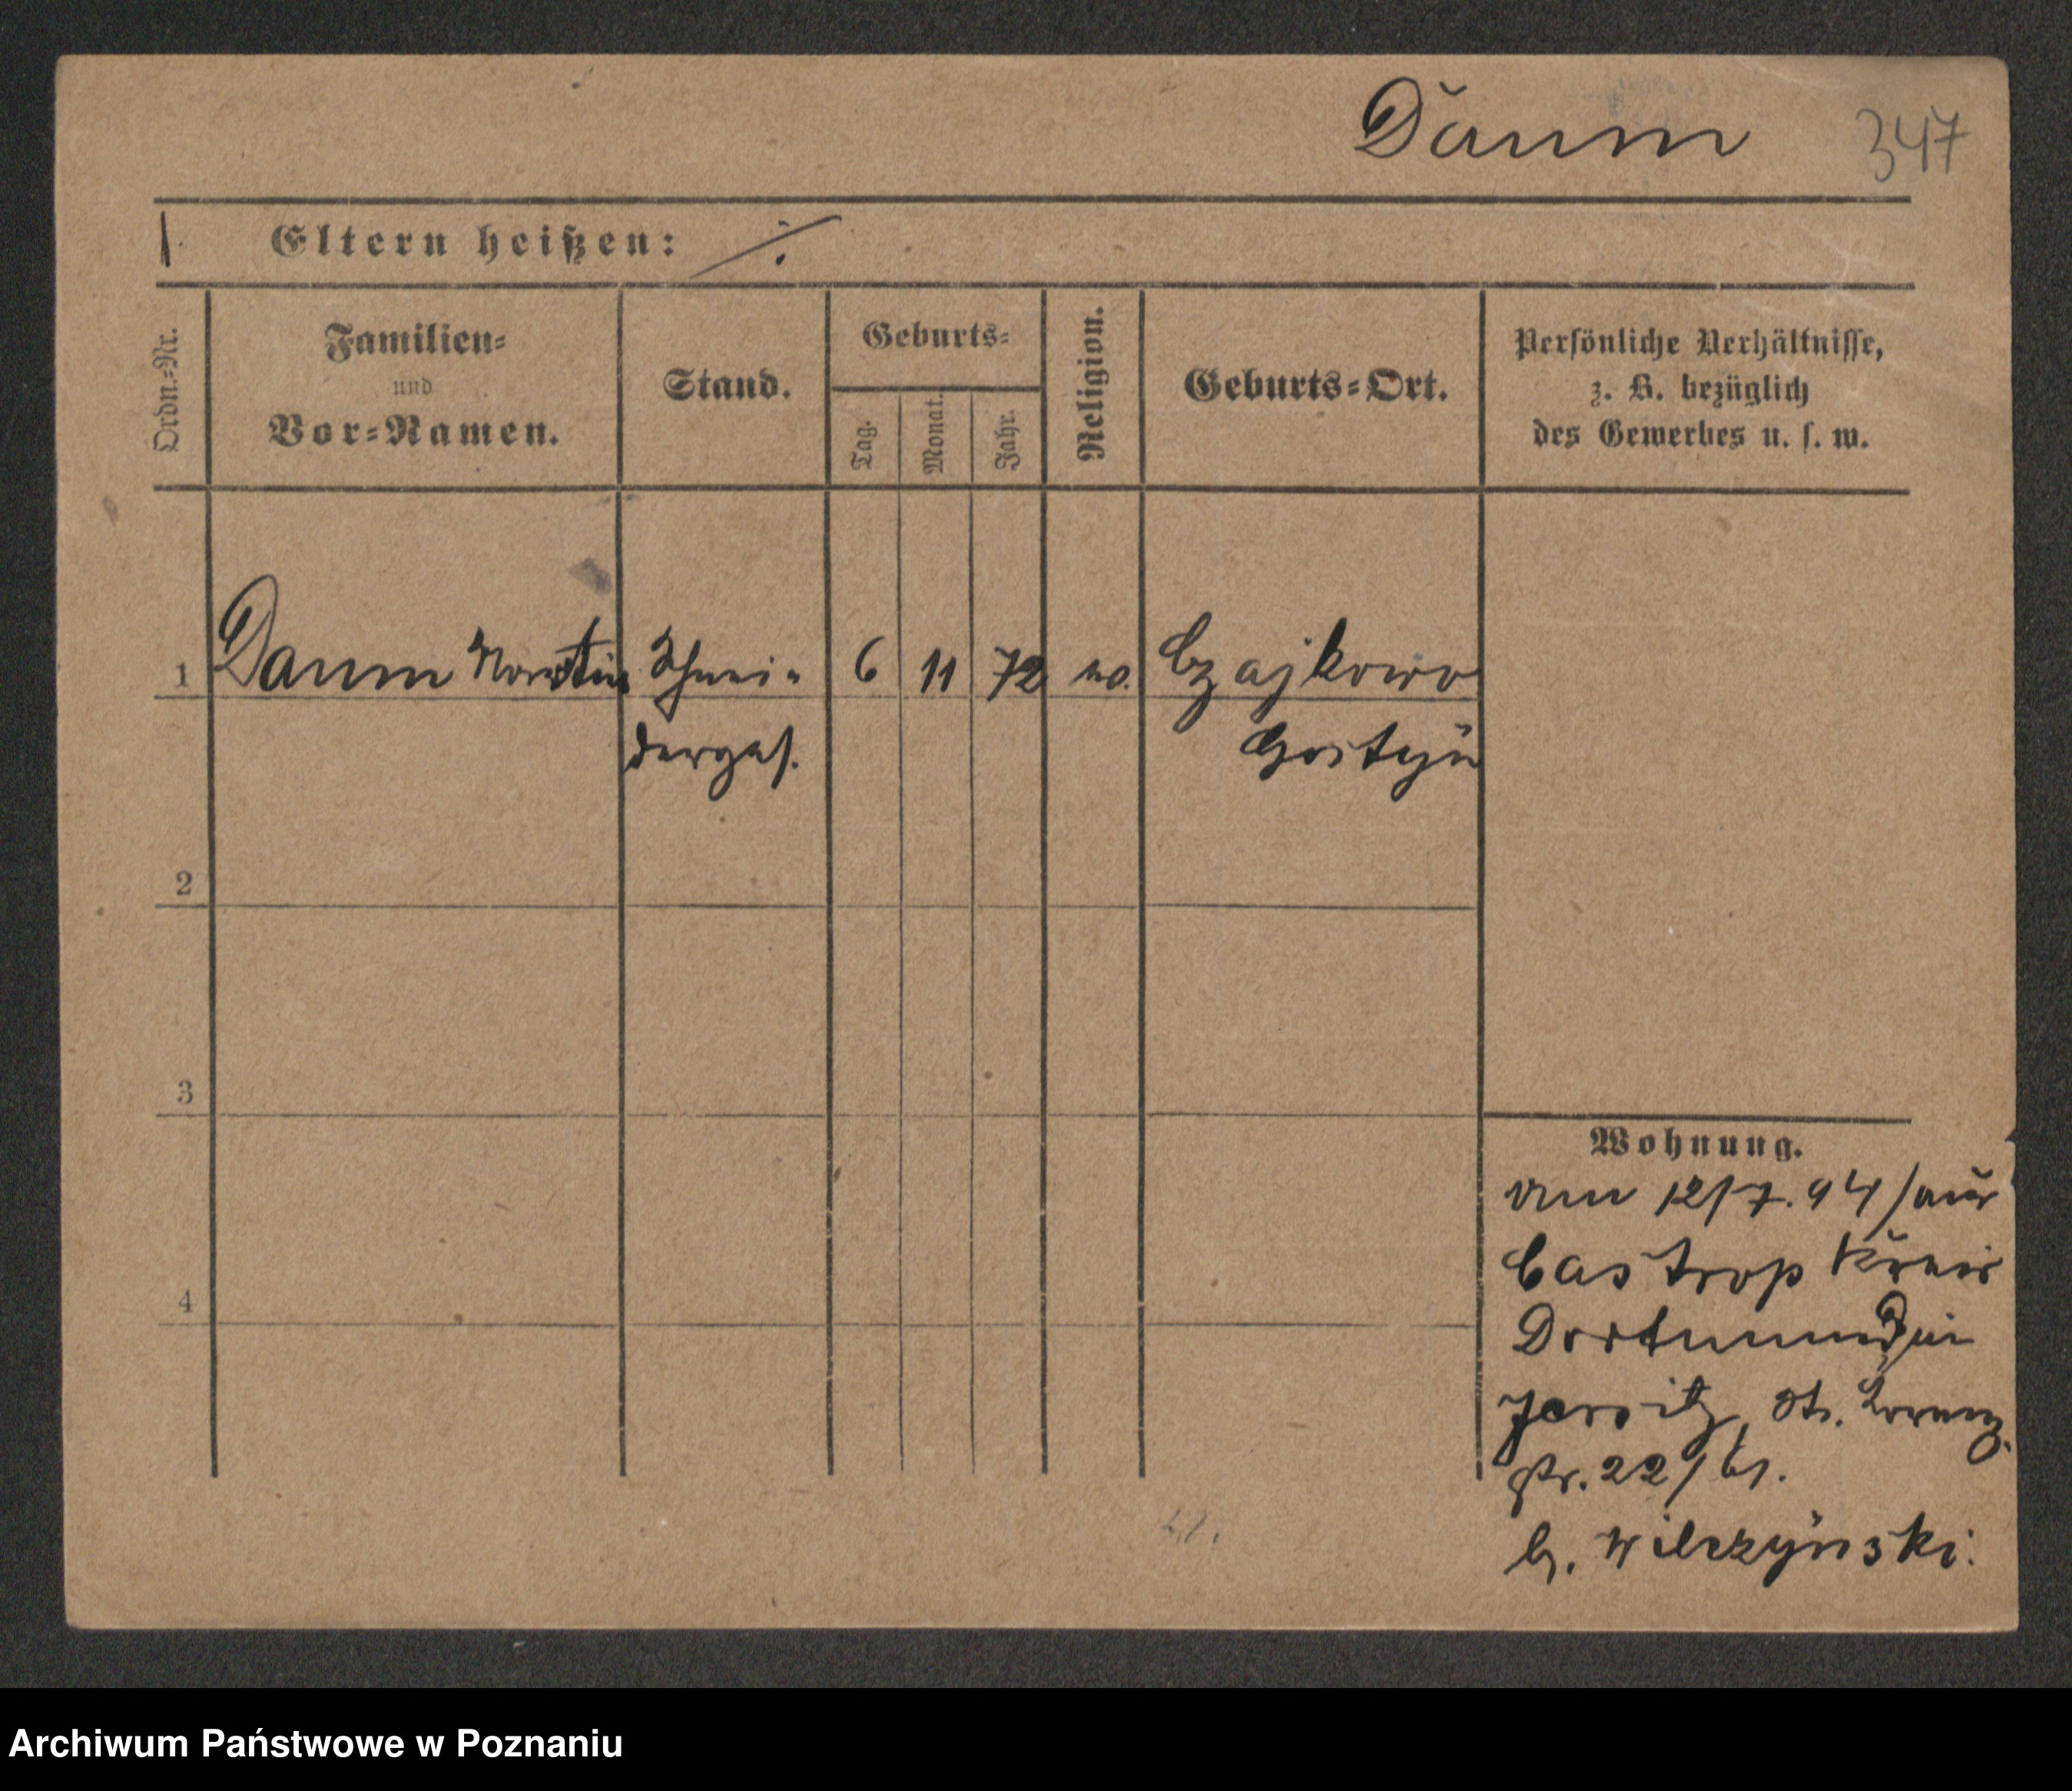 Daum 347
1. Eltern heißen: ·/.
Ordn.-Nr.
Familien-
und
Vor-Namen.
Stand.
Geburts-
Tag.
Monat.
Jahr.
Religion.
Geburts-Ort.
Persönliche Verhältnisse,
z. B. bezüglich
des Gewerbes u. s. w.
1 Daum Martin Schnei- 6 11 72 Czajkowo
derges. Gostyn
2
3
4
Wohnung.
vom 12/7. 94/aus
Castrop Kreis
Dortmund in
Jersitz, St. Lorenz.
str. 22/b/.
b. Wilczynski.
Archiwum Państwowe w Poznaniu